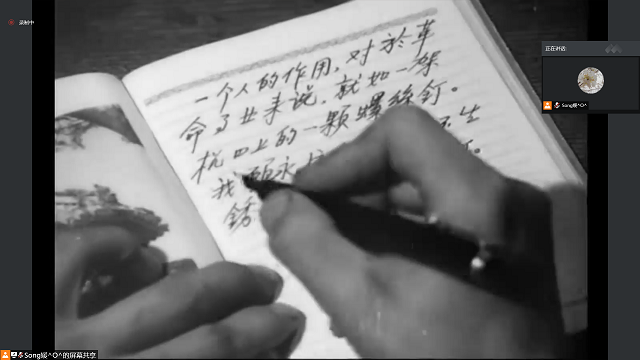 一个人的作用，对於革
命事业来说，就如一架
机器上的一颗螺丝钉。
我 愿永
锈
录制中
正在讲话:
Song媛^O^
Song媛^O^的屏幕共享